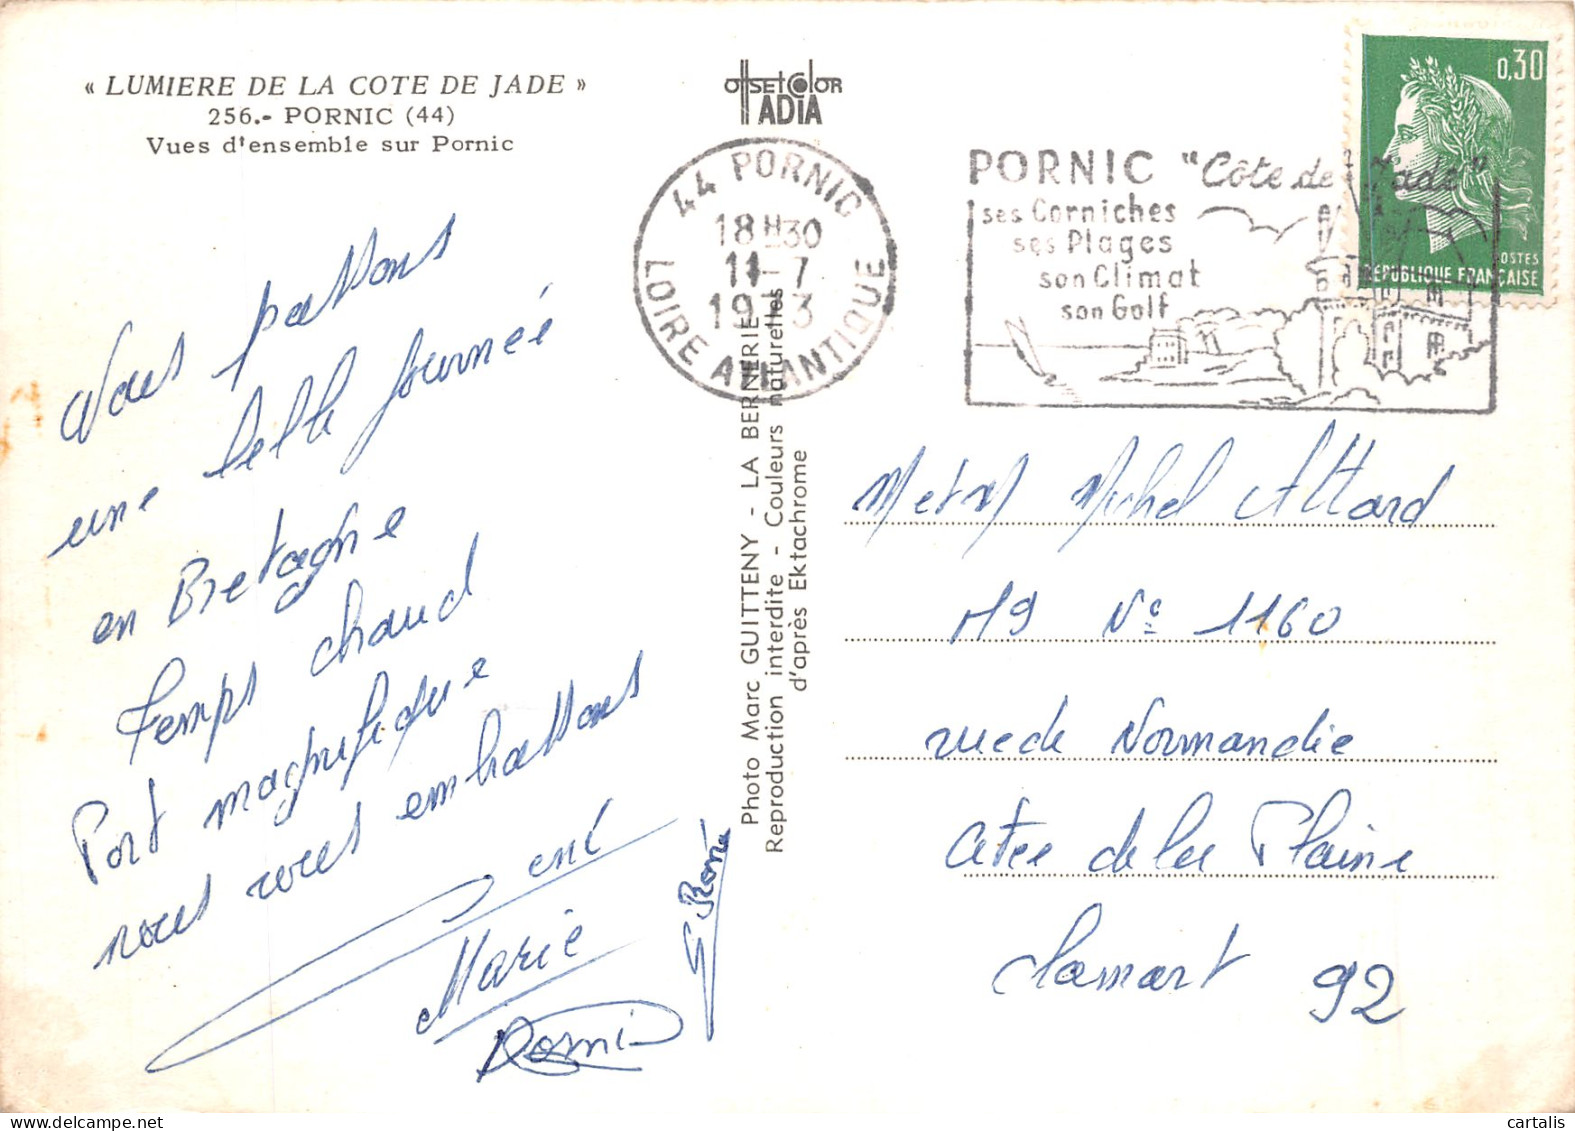 « LUMIERE DE LA COTE DE JADE »
256.- PORNIC (44)
Vues d'ensemble sur Pornic
Nous passons
une belle journée
en Bretagne
Temps chaud
Port magnifique
nous vous embrassons
René
Marie
offset color
ADIA
44 PORNIC
18H30
11-7
LOIRE ATLANTIQUE
PORNIC "Côte de Jade"
ses Corniches
ses Plages
son Climat
son Golf
0,30
POSTES
REPUBLIQUE FRANÇAISE
Photo Marc GUITTENY - LA BERNERIE
Reproduction interdite - Couleurs naturelles
d'après Ektachrome
M et M Michel Attard
N° 1160
rue de Normandie
Citee de la Plaine
Clamart 92
cartalis